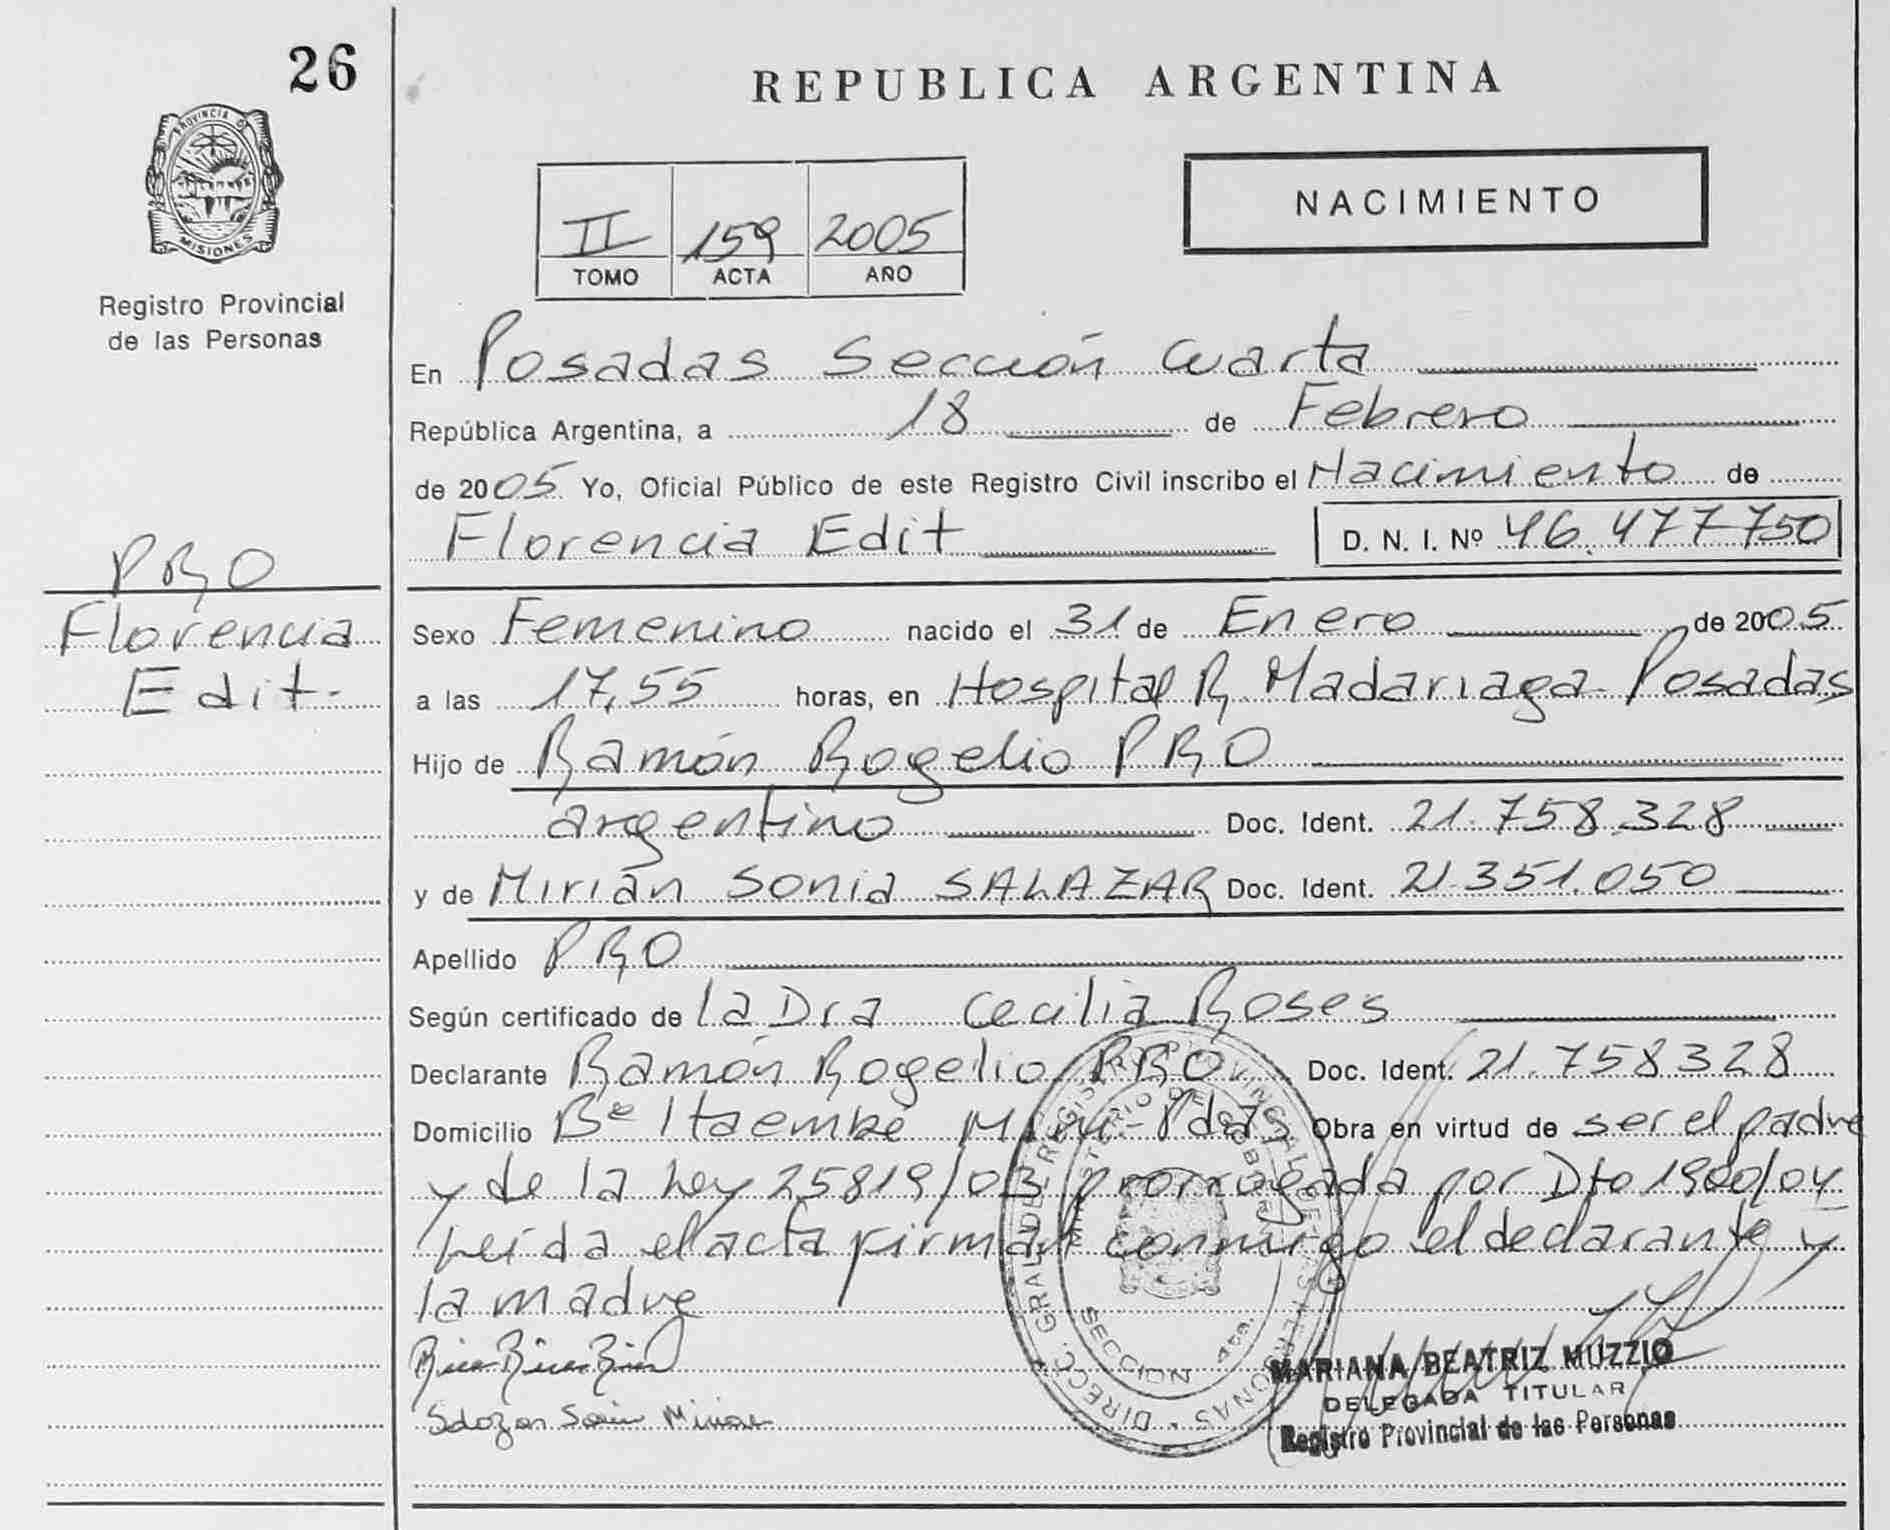 26
PROVINCIA DE
MISIONES
Registro Provincial
de las Personas
REPUBLICA ARGENTINA
NACIMIENTO
II 159 2005
TOMO ACTA AÑO
En Posadas Sección Cuarta
República Argentina, a 18 de Febrero
de 2005 Yo, Oficial Público de este Registro Civil inscribo el Nacimiento de
Florencia Edit D. N. I. Nº 46.477750
PRO
Florencia
Edit.-
Sexo Femenino nacido el 31 de Enero de 2005
a las 17,55 horas, en Hospital R. Madariaga - Posadas
Hijo de Ramón Rogelio PRO
argentino Doc. Ident. 21.758.328
y de Mirián Sonia SALAZAR Doc. Ident. 21.351.050
Apellido PRO
Según certificado de la Dra Cecilia Roses
Declarante Ramón Rogelio PRO Doc. Ident. 21.758328
Domicilio Bº Itaembé Miní - Pdas Obra en virtud de ser el padre
y de la Ley 25819/03 prorrogada por Dto 1900/04
Leída el acta firman conmigo el declarante y
la madre
DIRECC. GRAL. DE REGISTRO PROVINCIAL DE LAS PERSONAS
MINISTERIO DE GOBIERNO
SECCION 4ta.
MARIANA BEATRIZ MUZZIO
DELEGADA TITULAR
Registro Provincial de las Personas